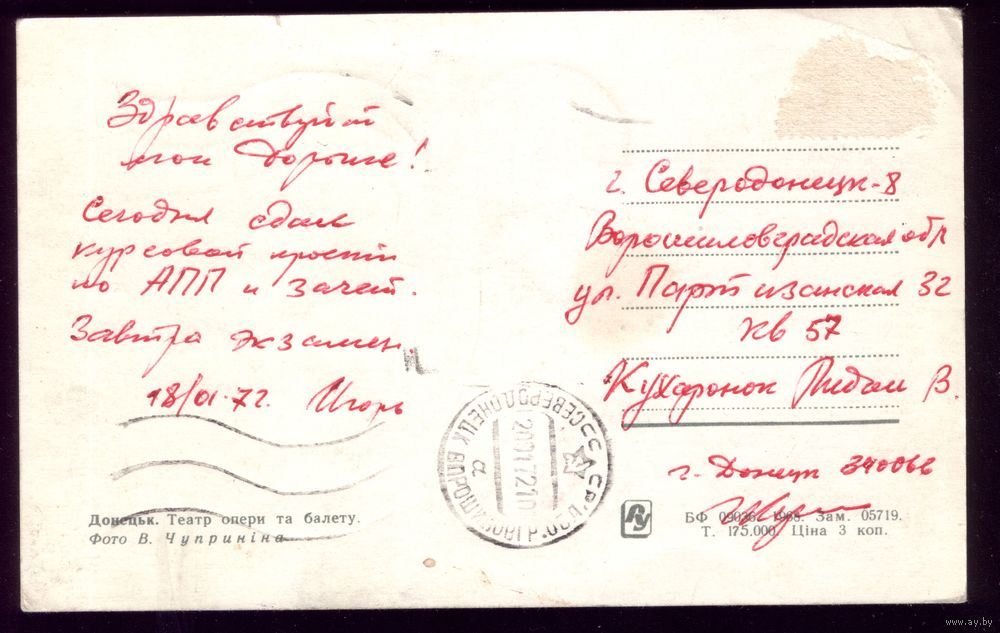 Здравствуйте
мои дорогие!
Сегодня сдал
курсовой проект
по АПП и зачет.
Завтра экзамен.
18/01-72. Игорь
Донецьк. Театр опери та балету.
Фото В. Чуприніна
г. Северодонецк-8
Ворошиловградская обл
ул. Партизанская 32
кв 57
Кухаронок В.
г. Донецк
БФ 1968. Зам. 05719.
Т. 175.000. Ціна 3 коп.
СЕВЕРОДОНЕЦК ВОРОШИЛОВГР. ОБЛ. УССР
а
www.ay.by